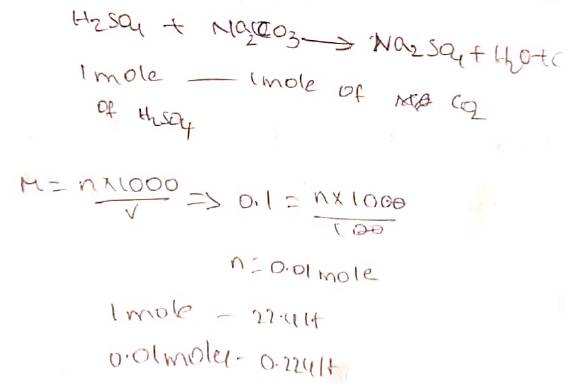 H2SO4 + Na2CO3 → Na2SO4 + H2O + C
1 mole — 1 mole of CO2
of H2SO4
M = n×1000/V => 0.1 = n×1000/100
n = 0.01 mole
1 mole - 22.4 lt
0.01 mole - 0.224 lt